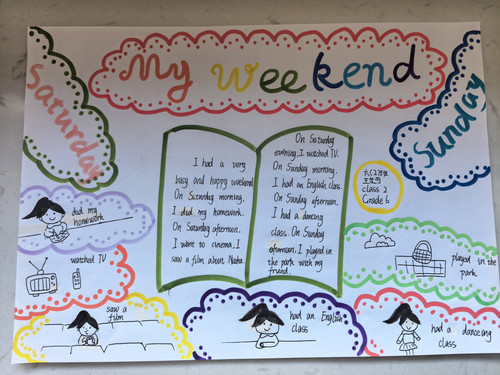 My weekend
Saturday
Sunday
I had a very
busy and happy weekend.
On Saturday morning.
I did my homework.
On Saturday afternoon.
I went to cinema. I
saw a film about Nezha.
On Saturday
evening. I watched TV.
On Sunday morning.
I had an English class
On Sunday afternoon.
I had a dancing
class. On Sunday
afternoon. I played in
the park with my
friend.
class 2
Grade 6
did my
homework
watched TV
saw a
film
had an English
class
had a dancing
class
played in the
park.